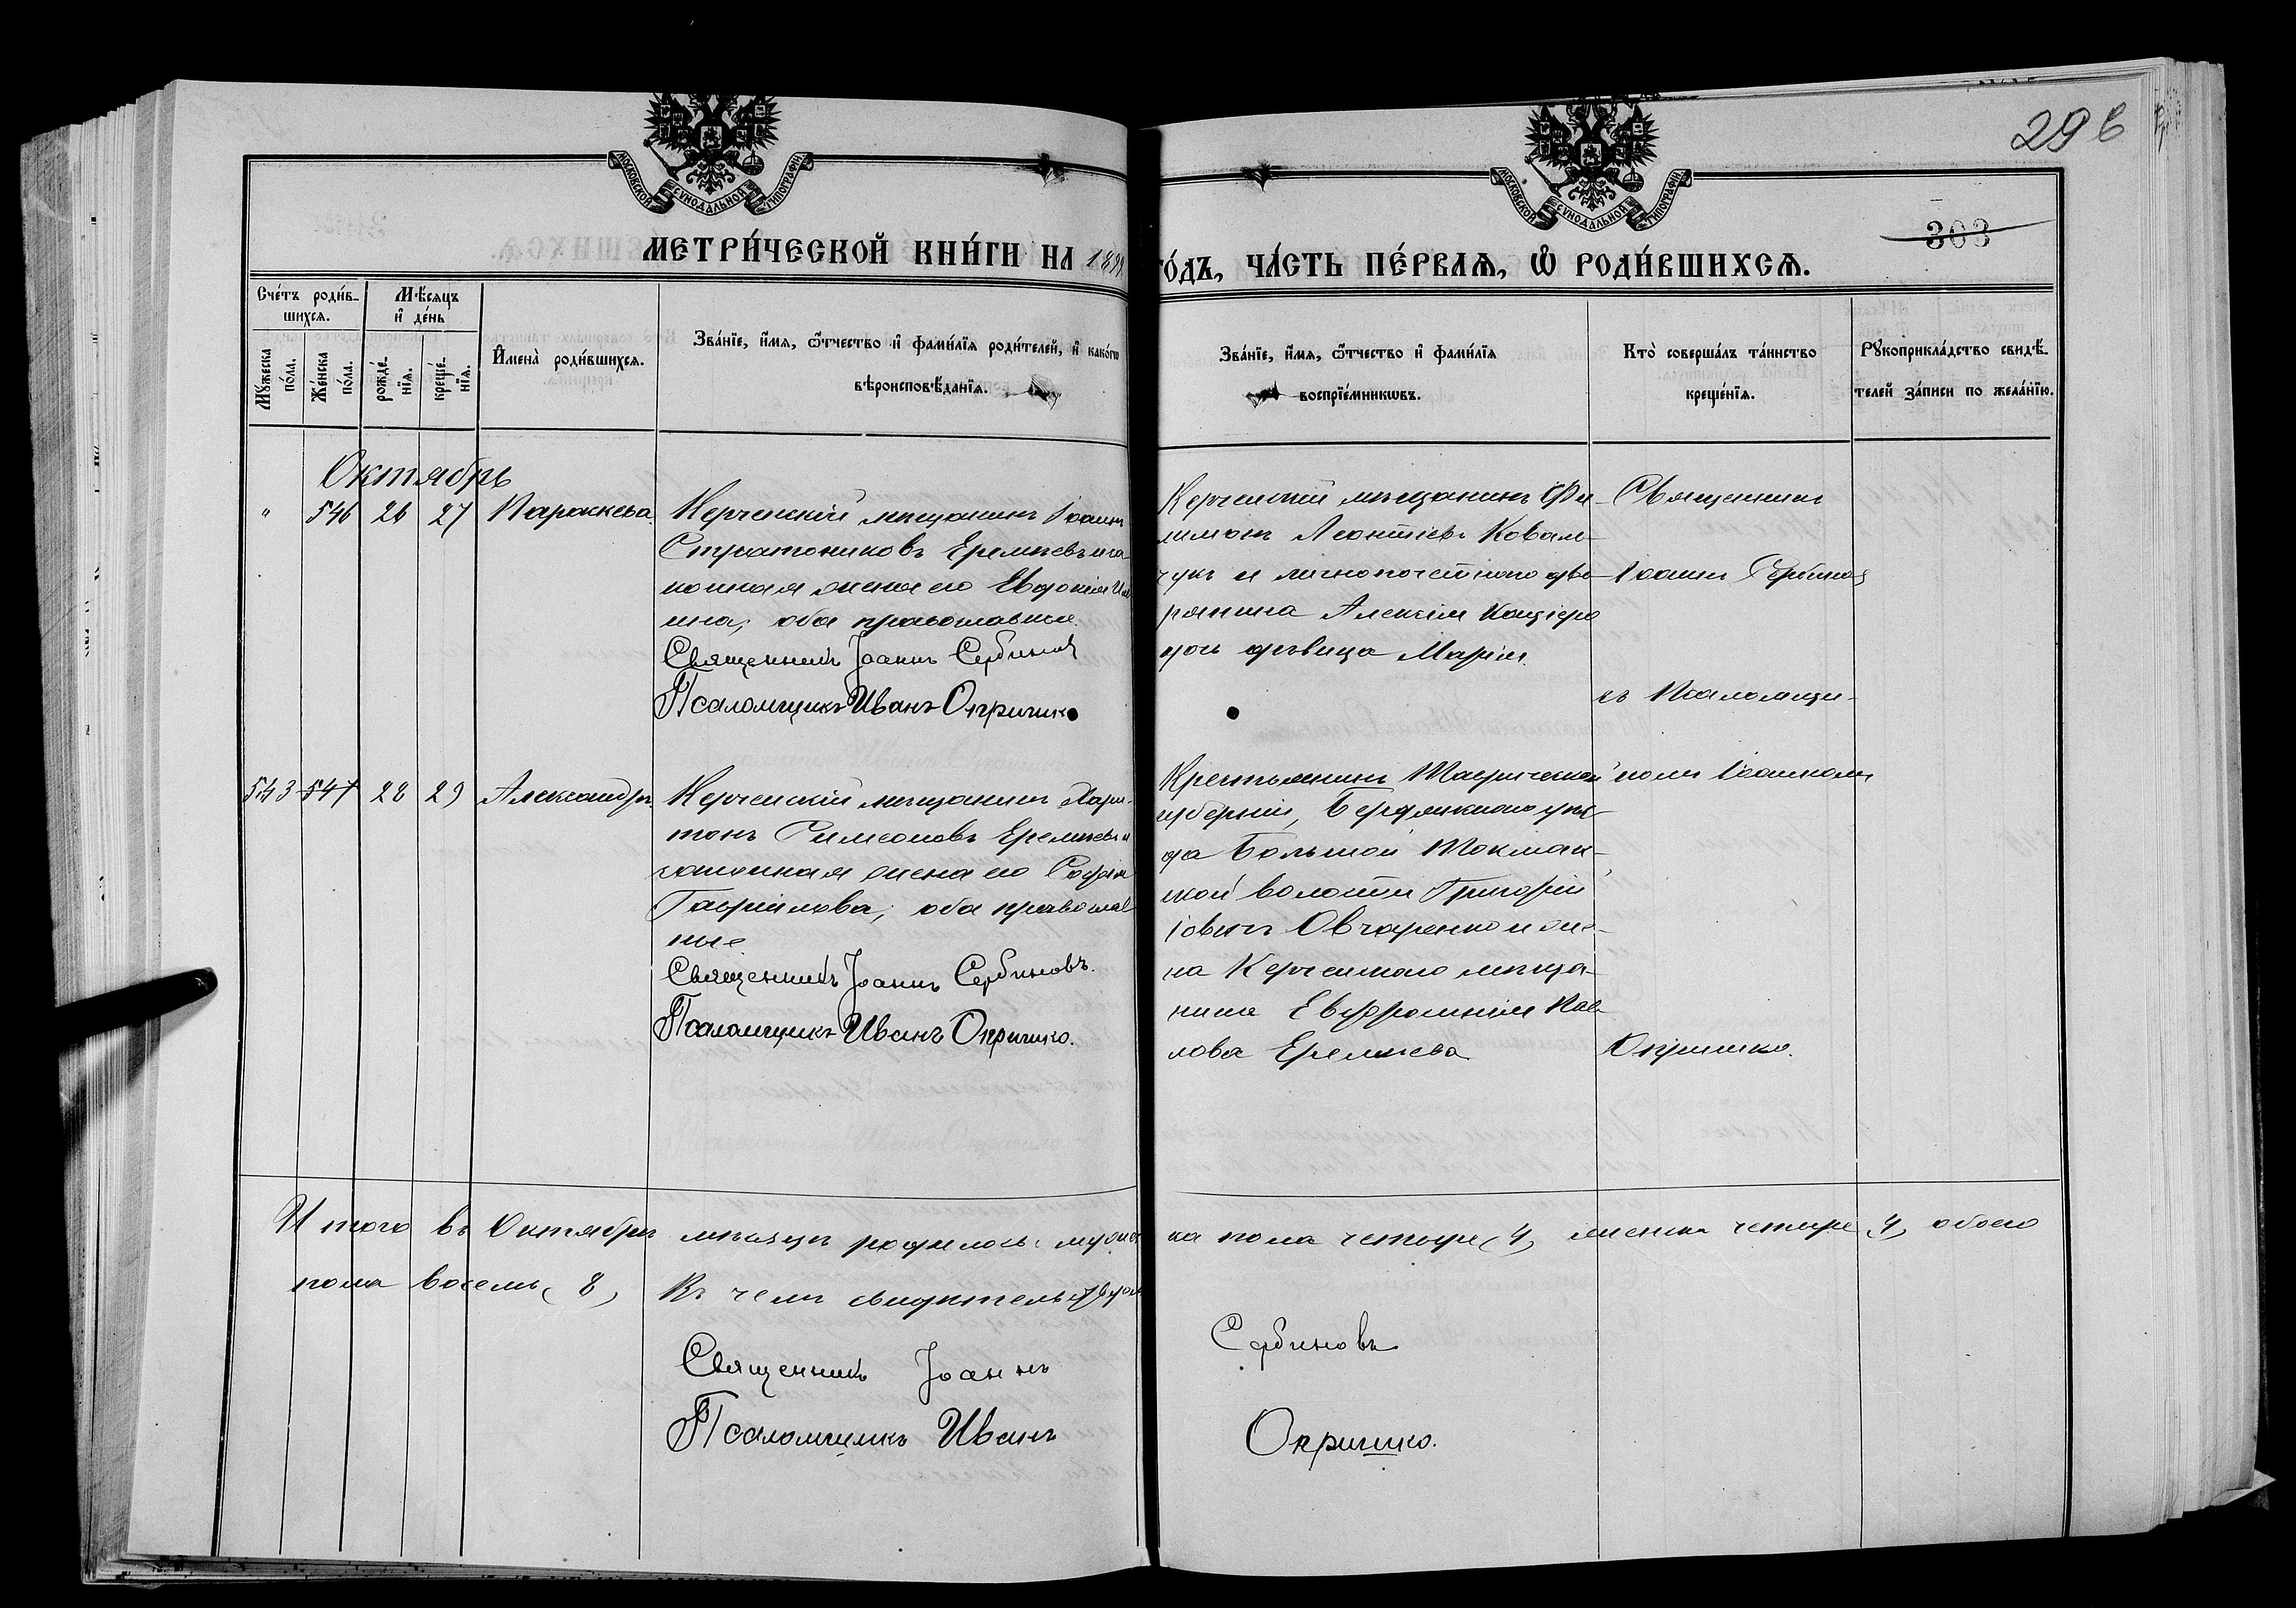 296
МОСКОВСКОЙ СѴНОДАЛЬНОЙ ТИПОГРАФІИ
МОСКОВСКОЙ СѴНОДАЛЬНОЙ ТИПОГРАФІИ
303
МЕТРИ́ЧЕСКОЙ КНИ́ГИ НА 1899
ГО́ДЪ, ЧА́СТЬ ПЕ́РВАѦ, Ѡ҆ РОДИ́ВШИХСѦ.
Сче́тъ роди́в-
шихсѧ.
Мꙋ́жеска по́ла.
Же́нска по́ла.
Мѣ́сѧцъ и҆ де́нь
рожде́-нїѧ.
креще́-нїѧ.
И҆мена̀ роди́вшихсѧ.
Зва́нїе, и҆́мѧ, ѻ҆́тчество и҆ фами́лїѧ роди́телей, и҆ како́гѡ
вѣроисповѣ́данїѧ.
Зва́нїе, и҆́мѧ, ѻ҆́тчество и҆ фами́лїѧ
воспрїе́мникѡвъ.
Кто̀ соверша́лъ та́инство
креще́нїѧ.
Рꙋкоприкла́дство свидѣ́-
телей за́писи по жела́нїю.
Октябрь
" 546 26 27 Параскева
Керченскій мѣщанинъ Іоаннъ
Стратониковъ Еремѣевъ и за-
конная жена его Евдокія
оба православные.
Священникъ Іоаннъ Сербиновъ
Псаломщикъ Иванъ Опришко
Керченскій мѣщанинъ Фи-
лимонъ Леонтіевъ Коваль-
чукъ и личнопочетнаго дво-
рянина Алексія
дочь дѣвица Марія.
Священникъ
Іоаннъ Сербиновъ
съ Псаломщи-
543 547 28 29 Александръ
Керченскій мѣщанинъ Хари-
тонъ Симеоновъ Еремѣевъ и
законная жена его Софія
Гавріилова, оба православ
ные
Священникъ Іоаннъ Сербиновъ.
Псаломщикъ Иванъ Опришко.
Крестьянинъ Таврической
губерніи, Бердянскаго уѣз-
да Большой Токмак-
ской волости Григорій
Іовинъ Овчаренко и же-
на Керченскаго мѣща-
нина Евфросинія Пав
лова Еремѣева
комъ Іоанномъ
Опришко.
Итого въ Октябрѣ мѣсяцѣ родилось: мужес
ка пола четыре (4) женска четыре (4), обоего
пола восемь (8) Въ чемъ свидѣтельствуемъ
Священникъ Іоаннъ Сербиновъ
Псаломщикъ Иванъ Опришко.